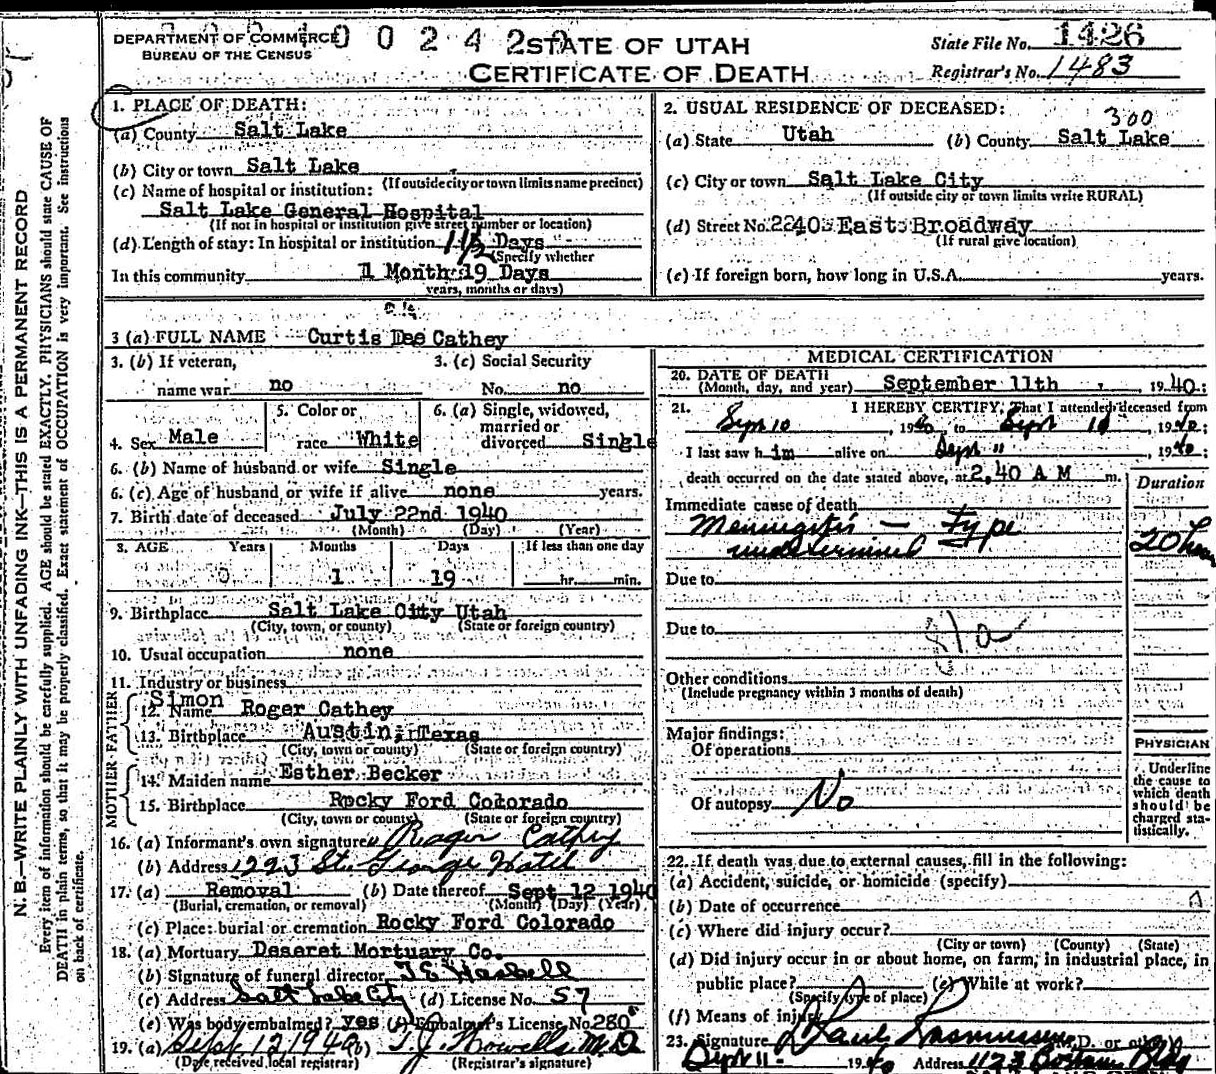 DEPARTMENT OF COMMERCE
BUREAU OF THE CENSUS
0 0 2 4 2
STATE OF UTAH
CERTIFICATE OF DEATH
State File No. 1426
Registrar's No. 1483
N. B.—WRITE PLAINLY WITH UNFADING INK—THIS IS A PERMANENT RECORD
Every item of information should be carefully supplied. AGE should be stated EXACTLY. PHYSICIANS should state CAUSE OF
DEATH in plain terms, so that it may be properly classified. Exact statement of OCCUPATION is very important. See instructions
on back of certificate.
1. PLACE OF DEATH:
(a) County Salt Lake
(b) City or town Salt Lake
(If outside city or town limits name precinct)
(c) Name of hospital or institution:
Salt Lake General Hospital
(If not in hospital or institution give street number or location)
(d) Length of stay: In hospital or institution Days
(Specify whether
In this community 1 Month 19 Days
years, months or days)
2. USUAL RESIDENCE OF DECEASED:
300
(a) State Utah (b) County Salt Lake
(c) City or town Salt Lake City
(If outside city or town limits write RURAL)
(d) Street No. 2240 East Broadway
(If rural give location)
(e) If foreign born, how long in U.S.A. years.
3 (a) FULL NAME Curtis Dee Cathey
3. (b) If veteran,
name war no
3. (c) Social Security
No. no
4. Sex Male
5. Color or
race White
6. (a) Single, widowed,
married or
divorced Single
6. (b) Name of husband or wife Single
6. (c) Age of husband or wife if alive none years.
7. Birth date of deceased July 22nd 1940
(Month) (Day) (Year)
8. AGE Years Months Days If less than one day
0 1 19 hr. min.
9. Birthplace Salt Lake City Utah
(City, town, or county) (State or foreign country)
10. Usual occupation none
11. Industry or business
FATHER
Simon
12. Name Roger Cathey
13. Birthplace Austin, Texas
(City, town or county) (State or foreign country)
MOTHER
14. Maiden name Esther Becker
15. Birthplace Rocky Ford Colorado
(City, town or county) (State or foreign country)
16. (a) Informant's own signature Roger Cathey
(b) Address 1223 St. George Hotel
17. (a) Removal (b) Date thereof Sept 12 1940
(Burial, cremation, or removal) (Month) (Day) (Year)
(c) Place: burial or cremation Rocky Ford Colorado
18. (a) Mortuary Deseret Mortuary Co.
(b) Signature of funeral director T.E. Hasbell
(c) Address Salt Lake City (d) License No. 57
(e) Was body embalmed? yes (f) Embalmer's License No. 280
19. (a) Sept 12 1940 (b) T.J. Howells M.D.
(Date received local registrar) (Registrar's signature)
MEDICAL CERTIFICATION
20. DATE OF DEATH
(Month, day, and year) September 11th, 1940;
21. I HEREBY CERTIFY, That I attended deceased from
Sept 10, 1940 to Sept 11, 1940;
I last saw h im alive on Sept 11, 1940;
death occurred on the date stated above, at 2,40 A M m.
Duration
Immediate cause of death
Meningitis — Type
undetermined
20 hours
Due to
Due to
Other conditions
(Include pregnancy within 3 months of death)
Major findings:
Of operations
Of autopsy No
PHYSICIAN
Underline
the cause to
which death
should be
charged sta-
tistically.
22. If death was due to external causes, fill in the following:
(a) Accident, suicide, or homicide (specify)
(b) Date of occurrence
(c) Where did injury occur?
(City or town) (County) (State)
(d) Did injury occur in or about home, on farm, in industrial place, in
public place? (e) While at work?
(Specify type of place)
(f) Means of injury
23. Signature Paul Rasmussen M.D. or other)
Sept 11 - 1940 Address 1123 Boston Bldg